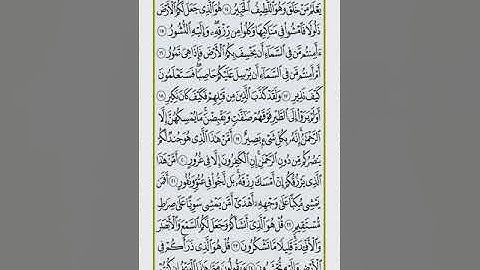 يَعْلَمُ مَنْ خَلَقَ وَهُوَ اللَّطِيفُ الْخَبِيرُ ١٤ هُوَ الَّذِي جَعَلَ لَكُمُ الْأَرْضَ
ذَلُولًا فَامْشُوا فِي مَنَاكِبِهَا وَكُلُوا مِن رِّزْقِهِ وَإِلَيْهِ النُّشُورُ ١٥
ءَأَمِنتُم مَّن فِي السَّمَاءِ أَن يَخْسِفَ بِكُمُ الْأَرْضَ فَإِذَا هِيَ تَمُورُ ١٦
أَمْ أَمِنتُم مَّن فِي السَّمَاءِ أَن يُرْسِلَ عَلَيْكُمْ حَاصِبًا فَسَتَعْلَمُونَ
كَيْفَ نَذِيرِ ١٧ وَلَقَدْ كَذَّبَ الَّذِينَ مِن قَبْلِهِمْ فَكَيْفَ كَانَ نَكِيرِ ١٨
أَوَلَمْ يَرَوْا إِلَى الطَّيْرِ فَوْقَهُمْ صَافَّاتٍ وَيَقْبِضْنَ مَا يُمْسِكُهُنَّ إِلَّا
الرَّحْمَٰنُ إِنَّهُ بِكُلِّ شَيْءٍ بَصِيرٌ ١٩ أَمَّنْ هَٰذَا الَّذِي هُوَ جُندٌ لَّكُمْ
يَنصُرُكُم مِّن دُونِ الرَّحْمَٰنِ إِنِ الْكَافِرُونَ إِلَّا فِي غُرُورٍ ٢٠ أَمَّنْ هَٰذَا
الَّذِي يَرْزُقُكُمْ إِنْ أَمْسَكَ رِزْقَهُ بَل لَّجُّوا فِي عُتُوٍّ وَنُفُورٍ ٢١ أَفَمَن
يَمْشِي مُكِبًّا عَلَىٰ وَجْهِهِ أَهْدَىٰ أَمَّن يَمْشِي سَوِيًّا عَلَىٰ صِرَاطٍ
مُّسْتَقِيمٍ ٢٢ قُلْ هُوَ الَّذِي أَنشَأَكُمْ وَجَعَلَ لَكُمُ السَّمْعَ وَالْأَبْصَارَ
وَالْأَفْئِدَةَ قَلِيلًا مَّا تَشْكُرُونَ ٢٣ قُلْ هُوَ الَّذِي ذَرَأَكُمْ فِي
الْأَرْضِ وَإِلَيْهِ تُحْشَرُونَ ٢٤ وَيَقُولُونَ مَتَىٰ هَٰذَا الْوَعْدُ إِن كُنتُمْ